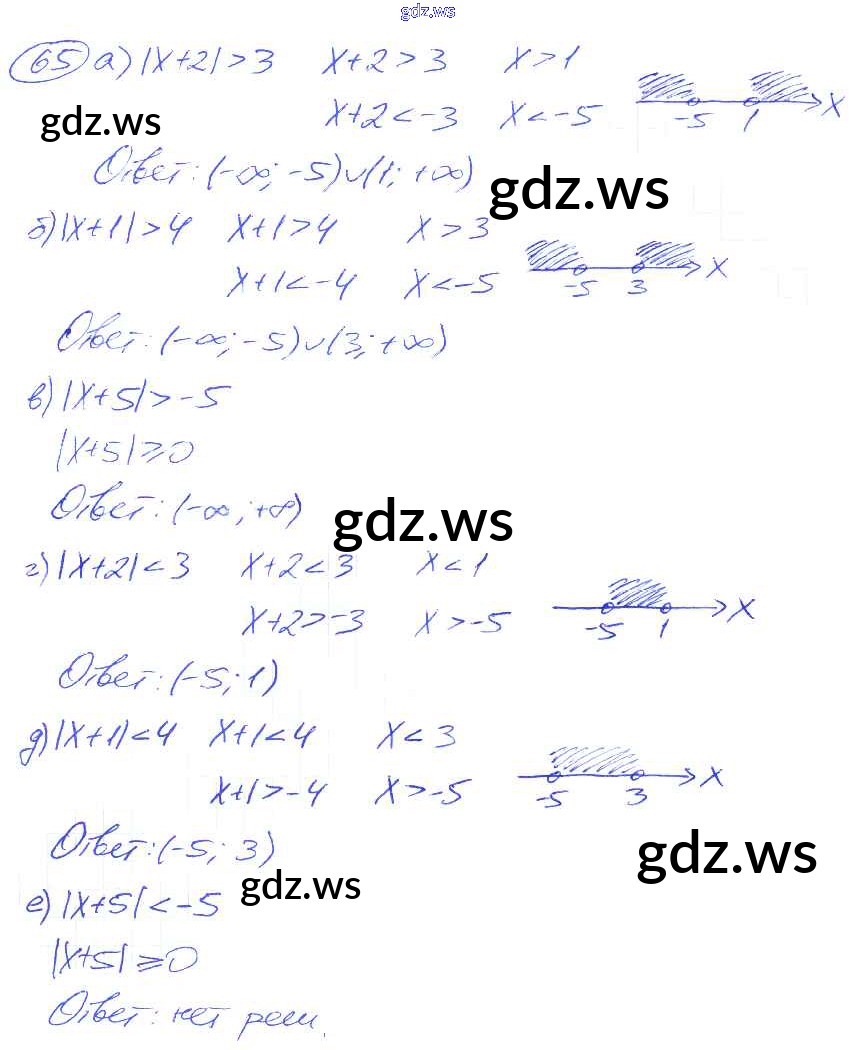 gdz.ws
65 а) |x+2|>3 x+2>3 x>1
x+2<-3 x<-5 -5 1 x
gdz.ws
Ответ: (-∞; -5)∪(1; +∞)
gdz.ws
б) |x+1|>4 x+1>4 x>3
x+1<-4 x<-5 -5 3 x
Ответ: (-∞; -5)∪(3; +∞)
в) |x+5|>-5
|x+5|⩾0
Ответ: (-∞; +∞)
gdz.ws
г) |x+2|<3 x+2<3 x<1
x+2>-3 x>-5 -5 1 x
Ответ: (-5; 1)
д) |x+1|<4 x+1<4 x<3
x+1>-4 x>-5 -5 3 x
Ответ: (-5; 3)
gdz.ws
gdz.ws
е) |x+5|<-5
|x+5|⩾0
Ответ: нет реш.